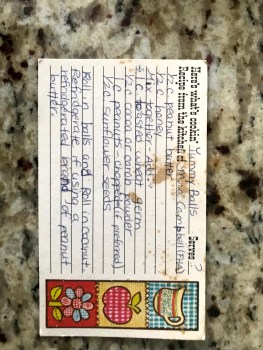 Here's what's cookin' Yummy Balls Serves ?
Recipe from the kitchen of Campbell (FHA)
1/2 c. peanut butter
1/2 c. honey
Mix together - Add:
toasted wheat germ
1/2 c. carob or cocoa powder
1/2 c. peanuts - chopped (if preferred)
1/2 c. sunflower seeds
Roll in balls and Roll in coconut
Refridgerate if using a
refridgerated brand of peanut
butter.